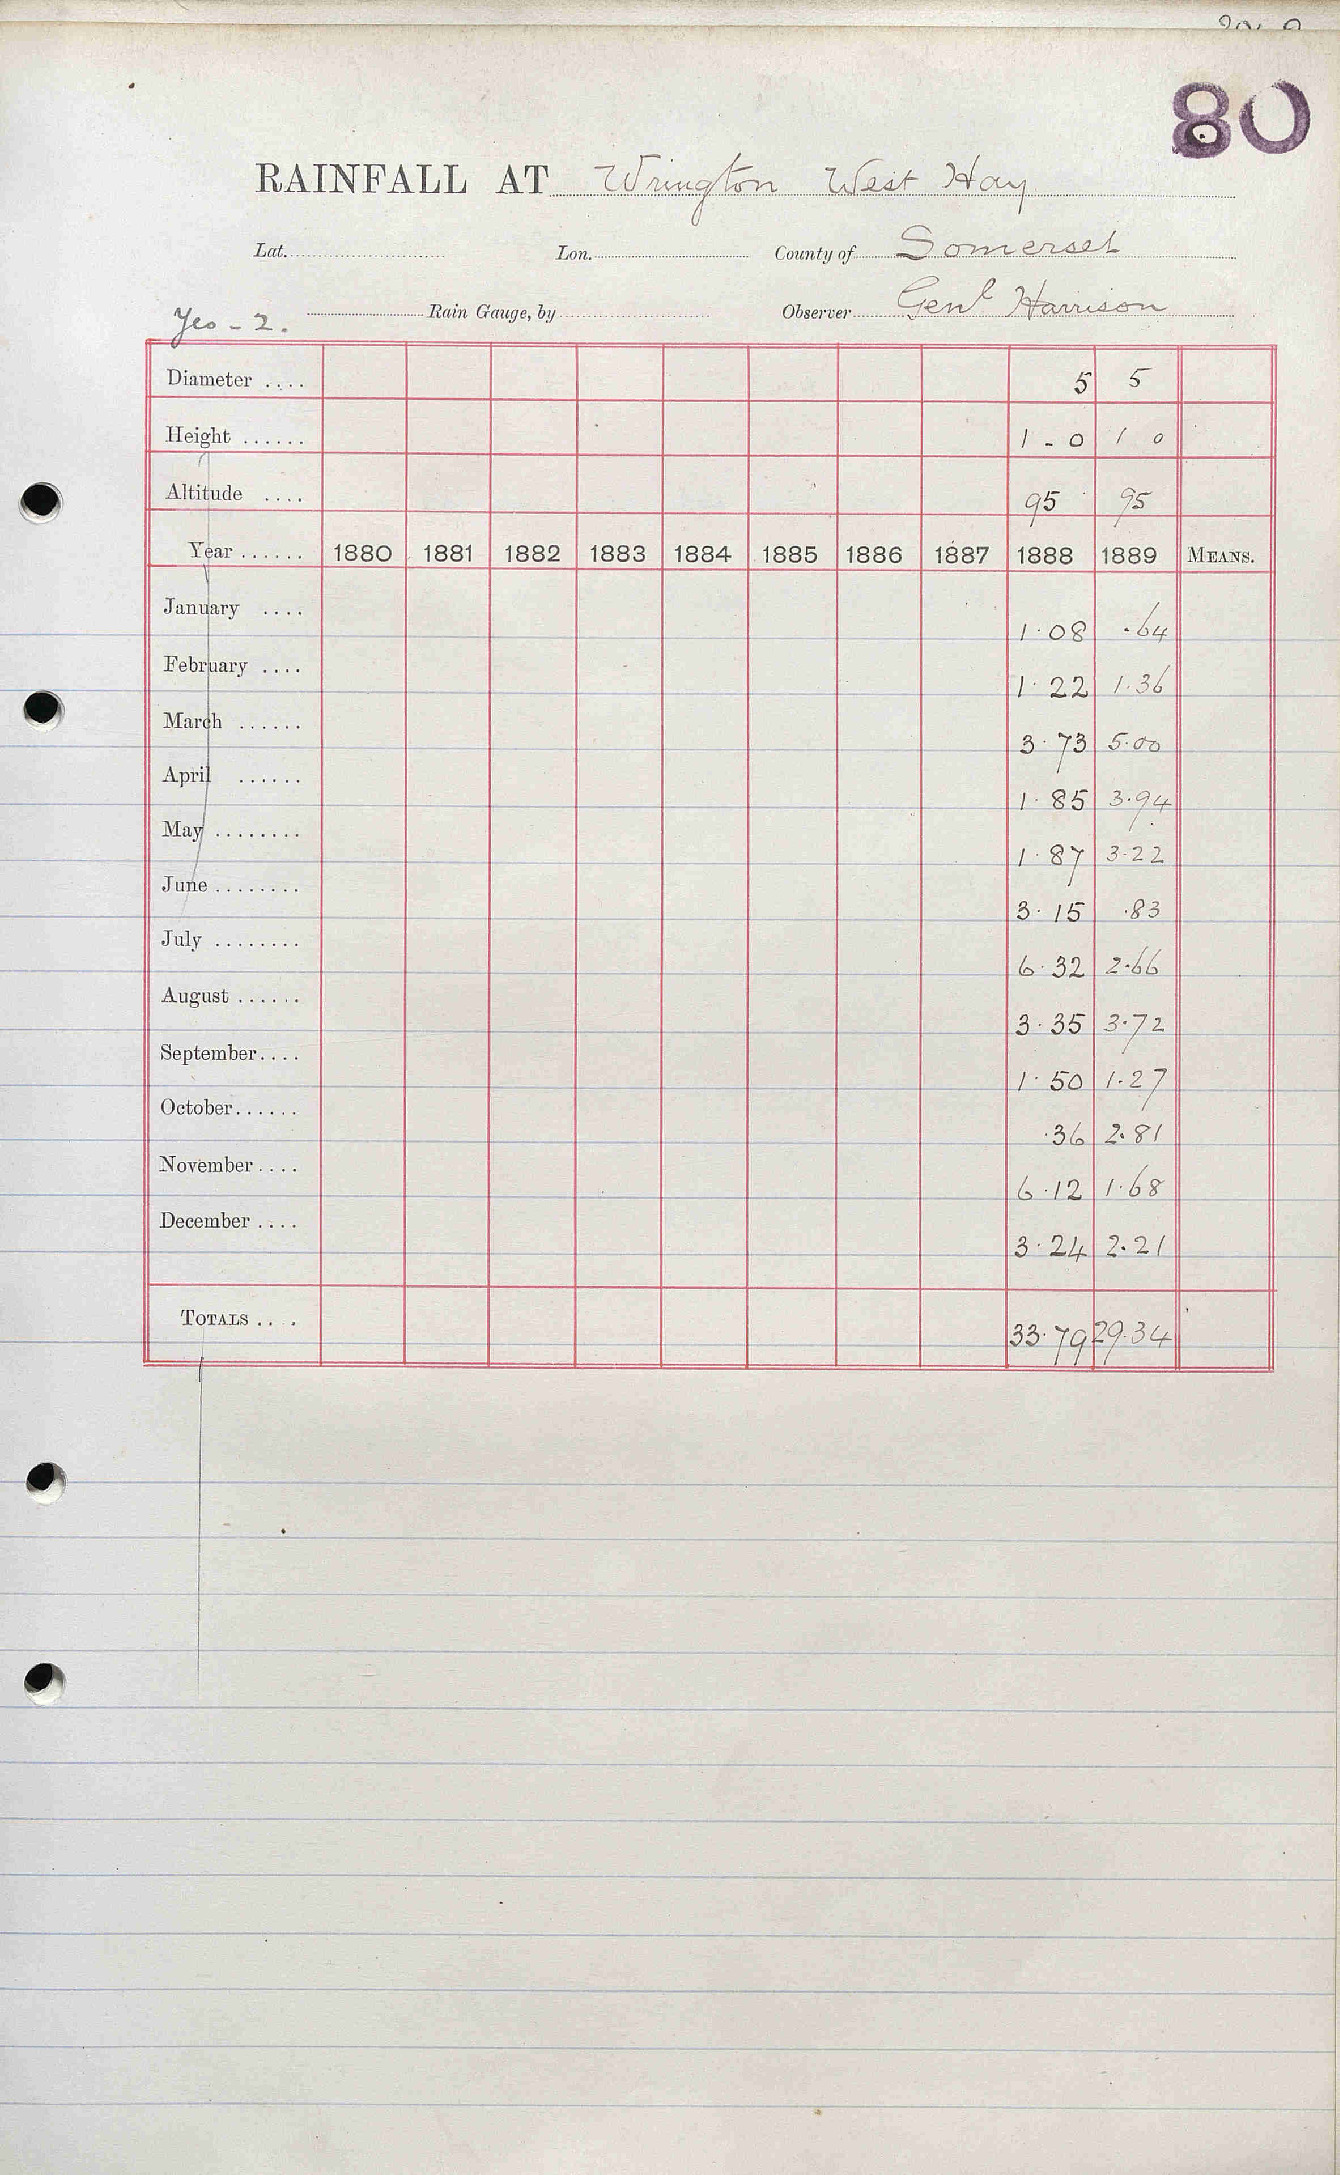 80
RAINFALL AT Wrington West Hay
Lat. Lon. County of Somerset
Yes - 2. Rain Gauge, by Observer Genl Harrison
Diameter .... 5 5
Height ...... 1 - 0 1 0
Altitude .... 95 95
Year ...... 1880 1881 1882 1883 1884 1885 1886 1887 1888 1889 MEANS.
January .... 1.08 .64
February .... 1.22 1.36
March ...... 3.73 5.00
April ...... 1.85 3.94
May ........ 1.87 3.22
June ........ 3.15 .83
July ........ 6.32 2.66
August ...... 3.35 3.72
September.... 1.50 1.27
October...... .36 2.81
November.... 6.12 1.68
December .... 3.24 2.21
TOTALS .... 33.79 29.34